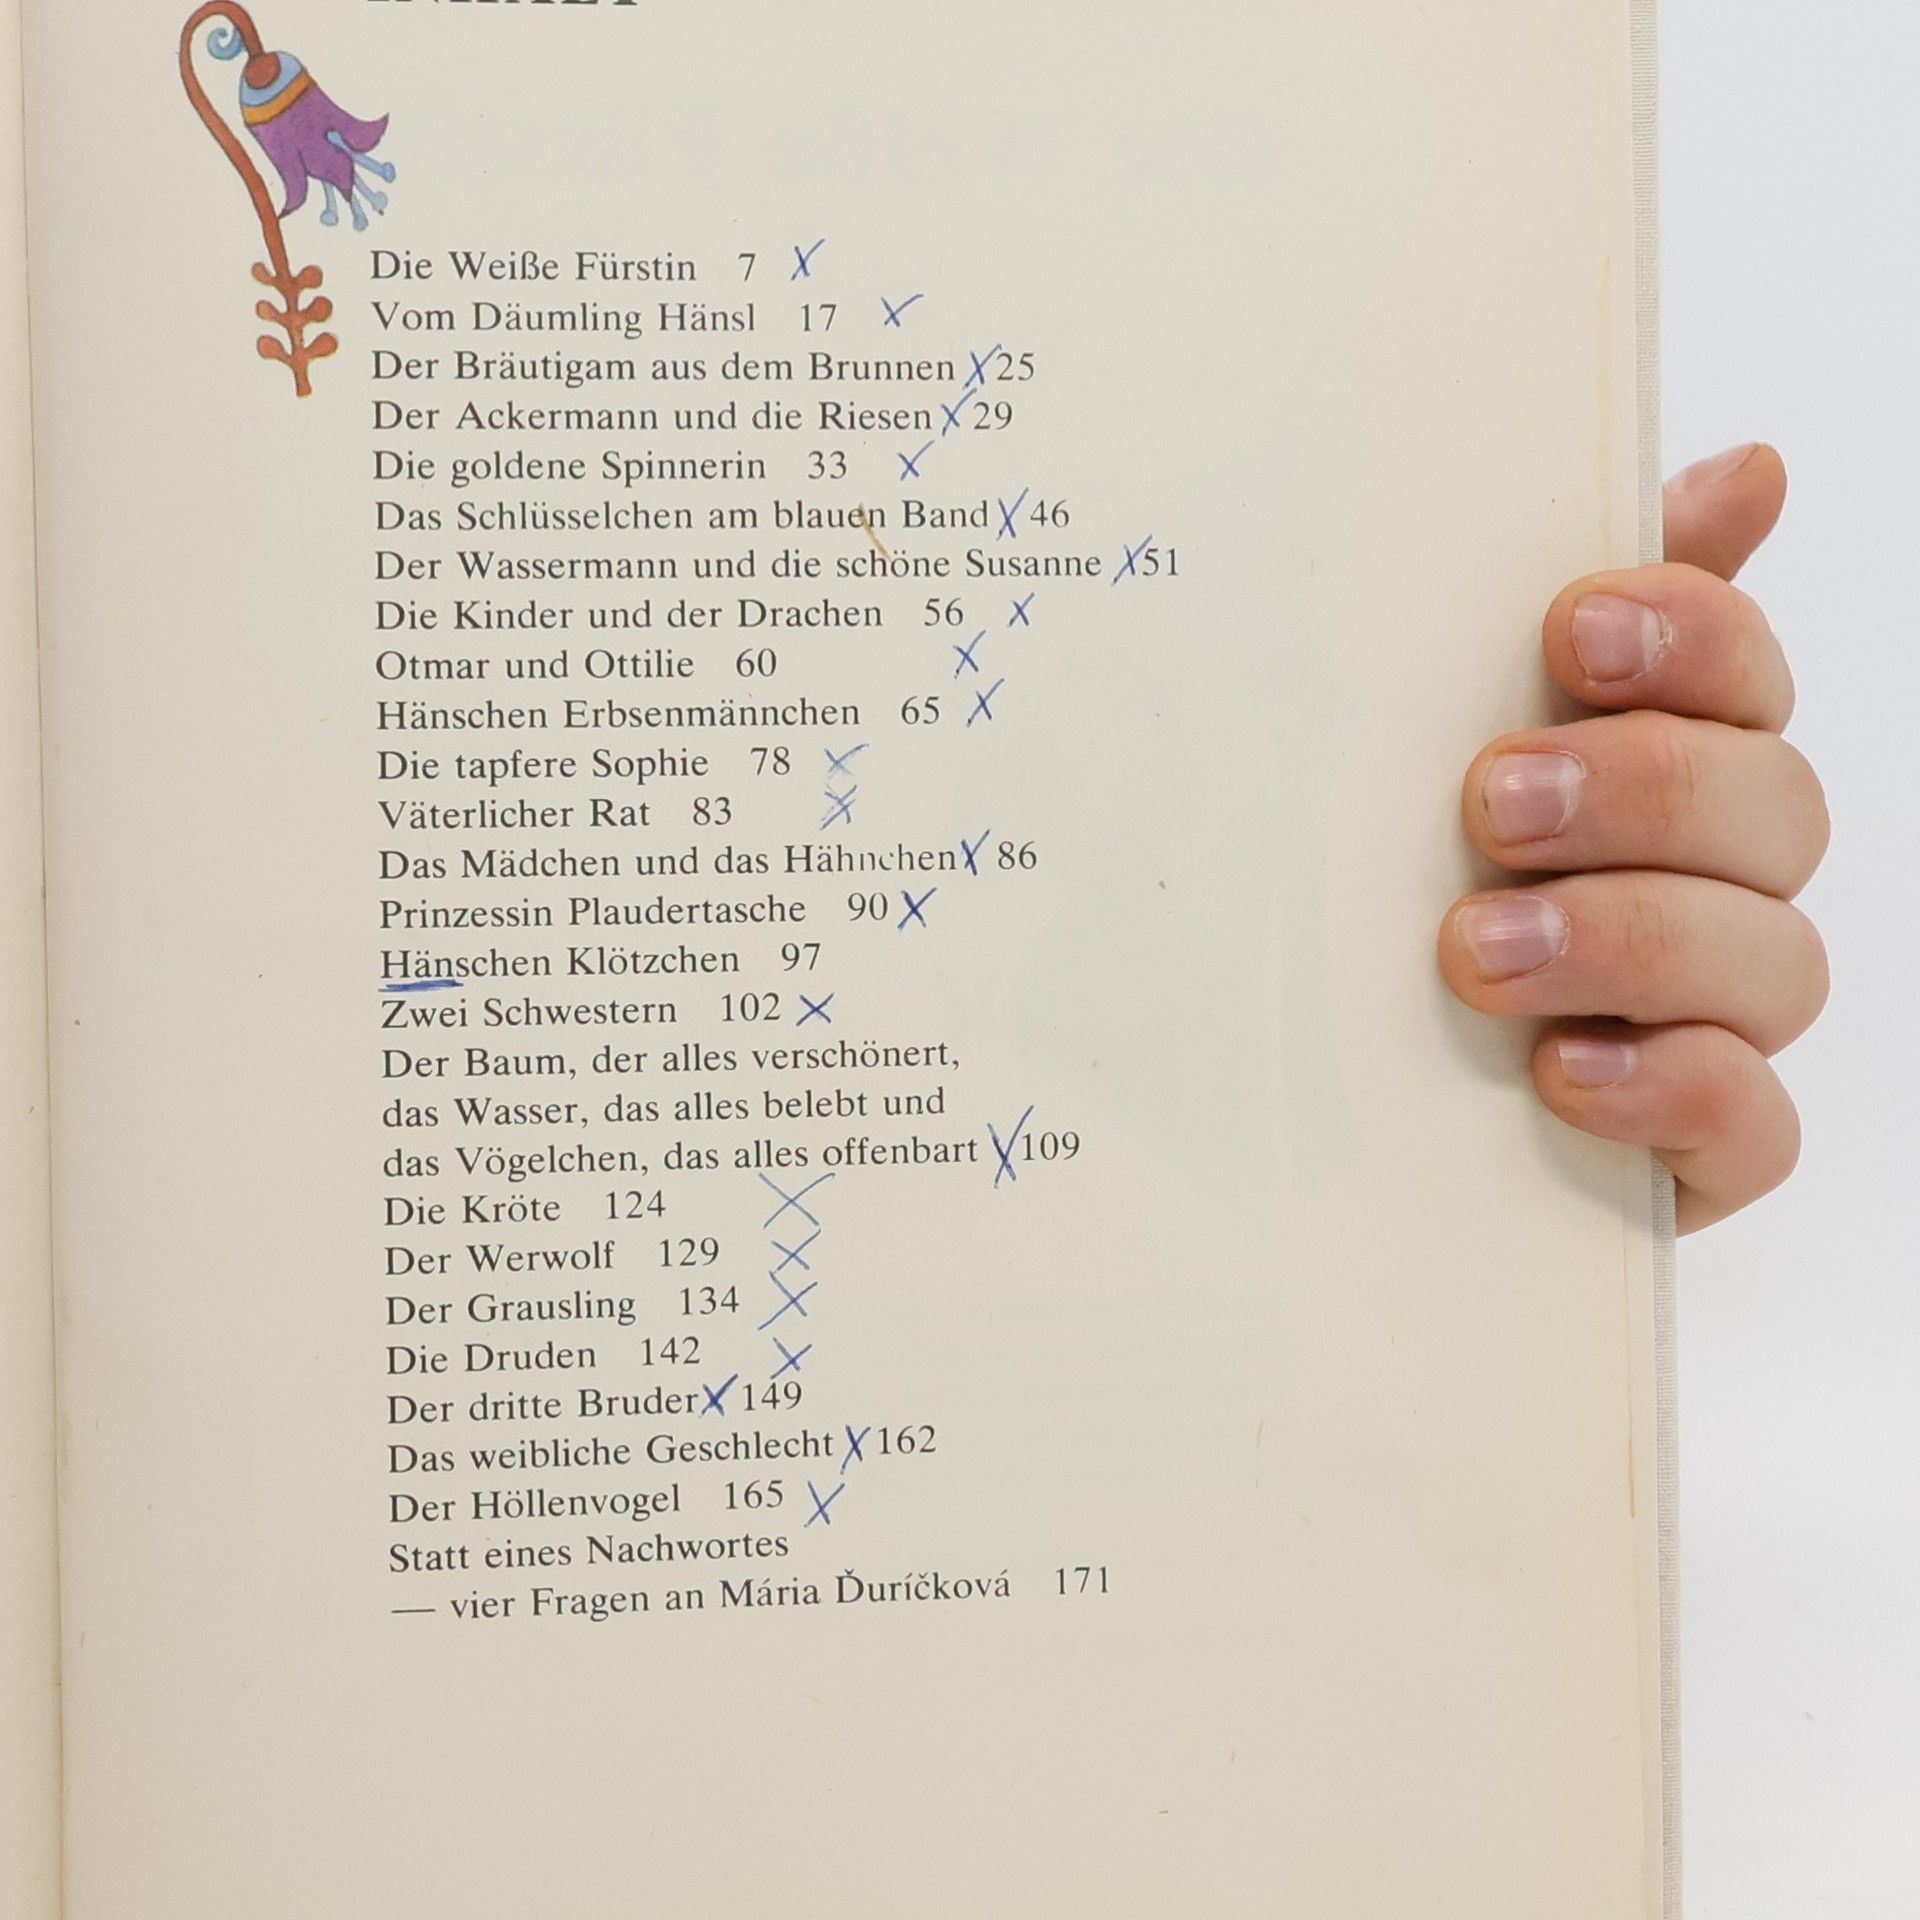 INHALT
Die Weiße Fürstin 7 X
Vom Däumling Hänsl 17 X
Der Bräutigam aus dem Brunnen X 25
Der Ackermann und die Riesen X 29
Die goldene Spinnerin 33 X
Das Schlüsselchen am blauen Band X 46
Der Wassermann und die schöne Susanne X 51
Die Kinder und der Drachen 56 X
Otmar und Ottilie 60 X
Hänschen Erbsenmännchen 65 X
Die tapfere Sophie 78 X
Väterlicher Rat 83 X
Das Mädchen und das Hähnchen X 86
Prinzessin Plaudertasche 90 X
Hänschen Klötzchen 97
Zwei Schwestern 102 X
Der Baum, der alles verschönert,
das Wasser, das alles belebt und
das Vögelchen, das alles offenbart X 109
Die Kröte 124 X
Der Werwolf 129 X
Der Grausling 134 X
Die Druden 142 X
Der dritte Bruder X 149
Das weibliche Geschlecht X 162
Der Höllenvogel 165 X
Statt eines Nachwortes
— vier Fragen an Mária Ďuríčková 171